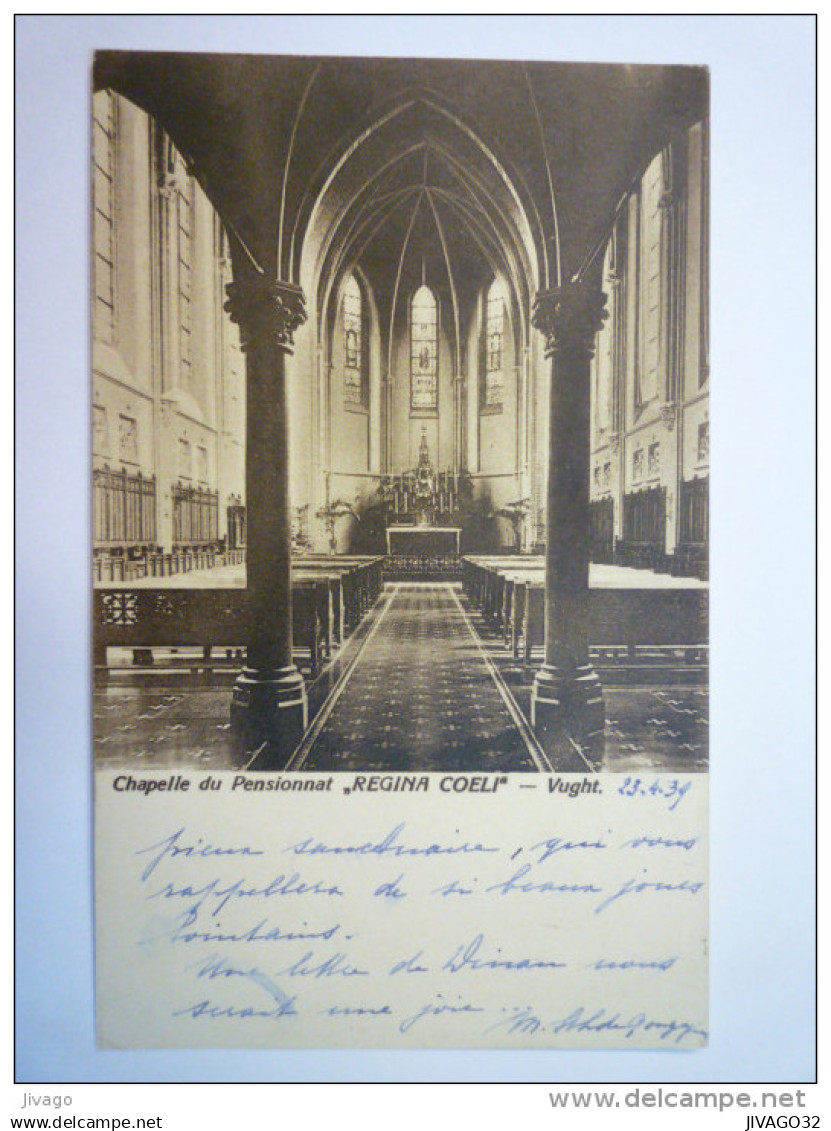 Chapelle du Pensionnat „REGINA COELI" — Vught. 23.4.39
pieux sanctuaire, qui vous
rappellera de si beaux jours
lointains.
Une lettre de Dinan nous
serait une joie ...
jivago
www.delcampe.net
JIVAGO32